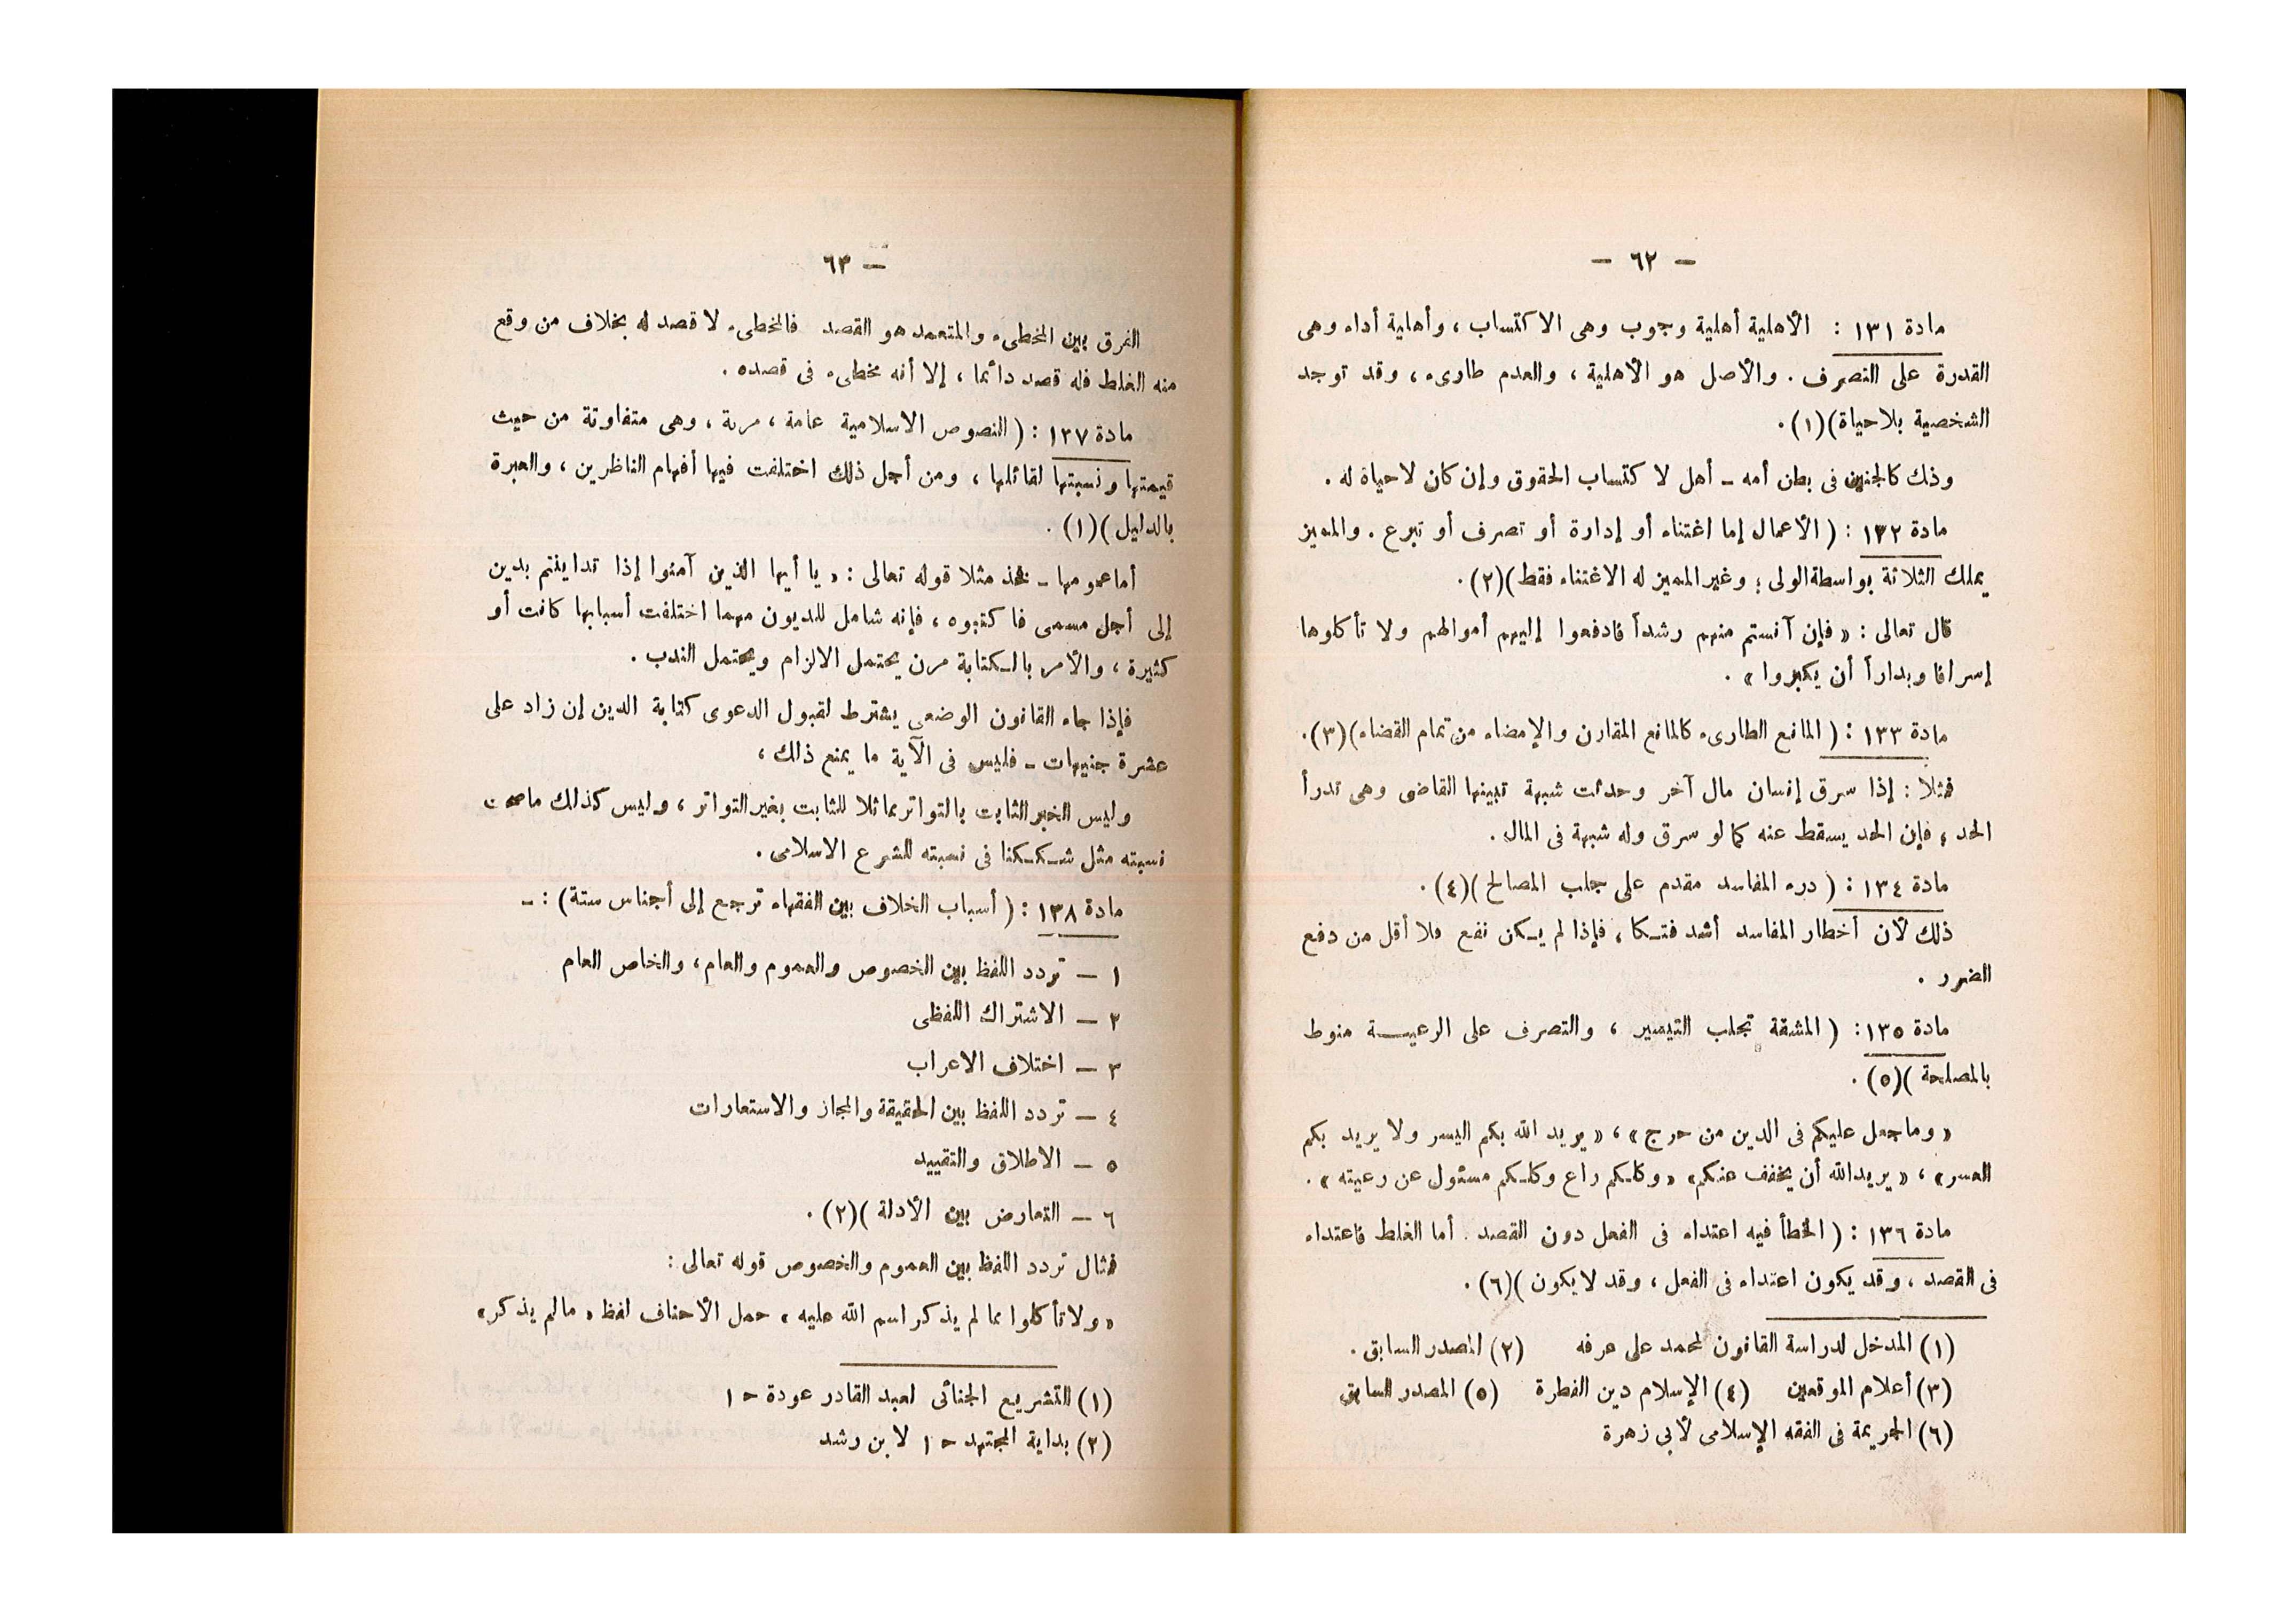 — ٦٢ —
مادة ١٣١ : الأهلية أهلية وجوب وهى الاكتساب ، وأهلية أداء وهى
القدرة على التصرف . والأصل هو الأهلية ، والعدم طارىء ، وقد توجد
الشخصية بلاحياة)(١).
وذك كالجنين فى بطن أمه – أهل لا كتساب الحقوق وإن كان لاحياة له .
مادة ١٣٢ : ( الأعمال إما اغتناء أو إدارة أو تصرف أو تبرع . والمميز
يملك الثلاثة بواسطة الولى ؛ وغير المميز له الاغتناء فقط)(٢).
قال تعالى : « فإن آنستم منهم رشداً فادفعوا إليهم أموالهم ولا تأكلوها
إسرافا وبداراً أن يكبروا » .
مادة ١٣٣ : ( المانع الطارىء كالمانع المقارن والإمضاء من تمام القضاء)(٣).
فمثلا : إذا سرق إنسان مال آخر وحدثت شبهة تبينها القاضى وهى تدرأ
الحد ، فإن الحد يسقط عنه كما لو سرق وله شبهة فى المال .
مادة ١٣٤ : ( درء المفاسد مقدم على جلب المصالح )(٤) .
ذلك لأن أخطار المفاسد أشد فتكا ، فإذا لم يكن نفع فلا أقل من دفع
الضرر .
مادة ١٣٥: ( المشقة تجلب التيسير ، والتصرف على الرعية منوط
بالمصلحة )(٥) .
« وماجعل عليكم فى الدين من حرج » ، « يريد الله بكم اليسر ولا يريد بكم
العسر» ، « يريدالله أن يخفف عنكم» « وكلكم راع وكلكم مسئول عن رعيته » .
مادة ١٣٦ : ( الخطأ فيه اعتداء فى الفعل دون القصد . أما الغلط فاعتداء
فى القصد ، وقد يكون اعتداء فى الفعل ، وقد لا يكون )(٦) .
(١) المدخل لدراسة القانون لمحمد على عرفه (٢) المصدر السابق .
(٣) أعلام الموقعين (٤) الإسلام دين الفطرة (٥) المصدر السابق
(٦) الجريمة فى الفقه الإسلامى لأبى زهرة
— ٦٣
الفرق بين المخطىء والمتعمد هو القصد فالمخطىء لا قصد له بخلاف من وقع
منه الغلط فله قصد دائما ، إلا أنه مخطىء فى قصده .
مادة ١٣٧ : ( النصوص الاسلامية عامة ، مرنة ، وهى متفاوتة من حيث
قيمتها ونسبتها لقائلها ، ومن أجل ذلك اختلفت فيها أفهام الناظرين ، والعبرة
بالدليل )(١) .
أما عمومها – فخذ مثلا قوله تعالى : « يا أيها الذين آمنوا إذا تداينتم بدين
إلى أجل مسمى فا كتبوه ، فإنه شامل للديون مهما اختلفت أسبابها كانت أو
كثيرة ، والأمر بالكتابة مرن يحتمل الالزام ويحتمل الندب .
فإذا جاء القانون الوضعى يشترط لقبول الدعوى كتابة الدين إن زاد على
عشرة جنيهات – فليس فى الآية ما يمنع ذلك ،
وليس الخبر الثابت بالتواتر مماثلا للثابت بغير التواتر ، وليس كذلك ماصحت
نسبته مثل شككنا فى نسبته للشرع الاسلامى .
مادة ١٣٨ : ( أسباب الخلاف بين الفقهاء ترجع إلى أجناس ستة) : –
١ — تردد اللفظ بين الخصوص والعموم والعام ، والخاص العام
٢ — الاشتراك اللفظى
٣ — اختلاف الاعراب
٤ — تردد اللفظ بين الحقيقة والمجاز والاستعارات
٥ — الاطلاق والتقييد
٦ — التعارض بين الأدلة )(٢) .
فمثال تردد اللفظ بين العموم والخصوص قوله تعالى :
« ولا تأكلوا مما لم يذكر اسم الله عليه » حمل الأحناف لفظ « مالم يذكر»
(١) التشريع الجنائى لعبد القادر عودة ح ١
(٢) بداية المجتهد ح ١ لا بن رشد